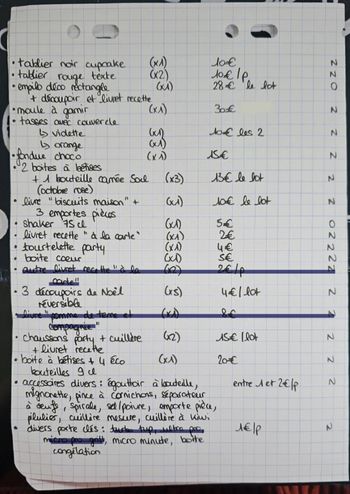 • tablier noir cupcake (x1) 10€ N
• tablier rouge texte (x2) 10€/p N
• emplo déco rectangle (x1) 28€ le lot O
+ découpoir et livret recette
• moule à garnir (x1) 30€ N
• tasses avec couvercle
↳ violette (x1) 10€ les 2 N
↳ orange (x1)
• fondue choco (x1) 15€ N
• 2 boites à bêtises
+ 1 bouteille carrée 50cl (x3) 13€ le lot N
(octobre rose)
• livre "biscuits maison" + (x1) 10€ le lot N
3 emportes pièces
• shaker 75cl (x1) 5€ O
• livret recette "à la carte" (x1) 2€ N
• tourtelette party (x1) 4€ N
• boite coeur (x1) 5€ N
• autre livret recette "à la (x2) 2€/p
carte"
• 3 découpoirs de Noël (x5) 4€/lot N
réversible
• livre "pomme de terre et (x1) 8€
compagnie"
• chaussons party + cuillère (x2) 15€/lot N
+ livret recette
• boite à bêtises + 4 éco (x1) 20€ N
bouteilles 9cl
• accessoires divers : égouttoir à bouteille, entre 1 et 2€/p N
mignonette, pince à cornichons, séparateur
à oeufs, spirale, sel/poivre, emporte pièce,
pilulier, cuillère mesure, cuillère à kiwi
• divers porte clés : ultra pro, 1€/p N
micro pro grill, micro minute, boite
congélation